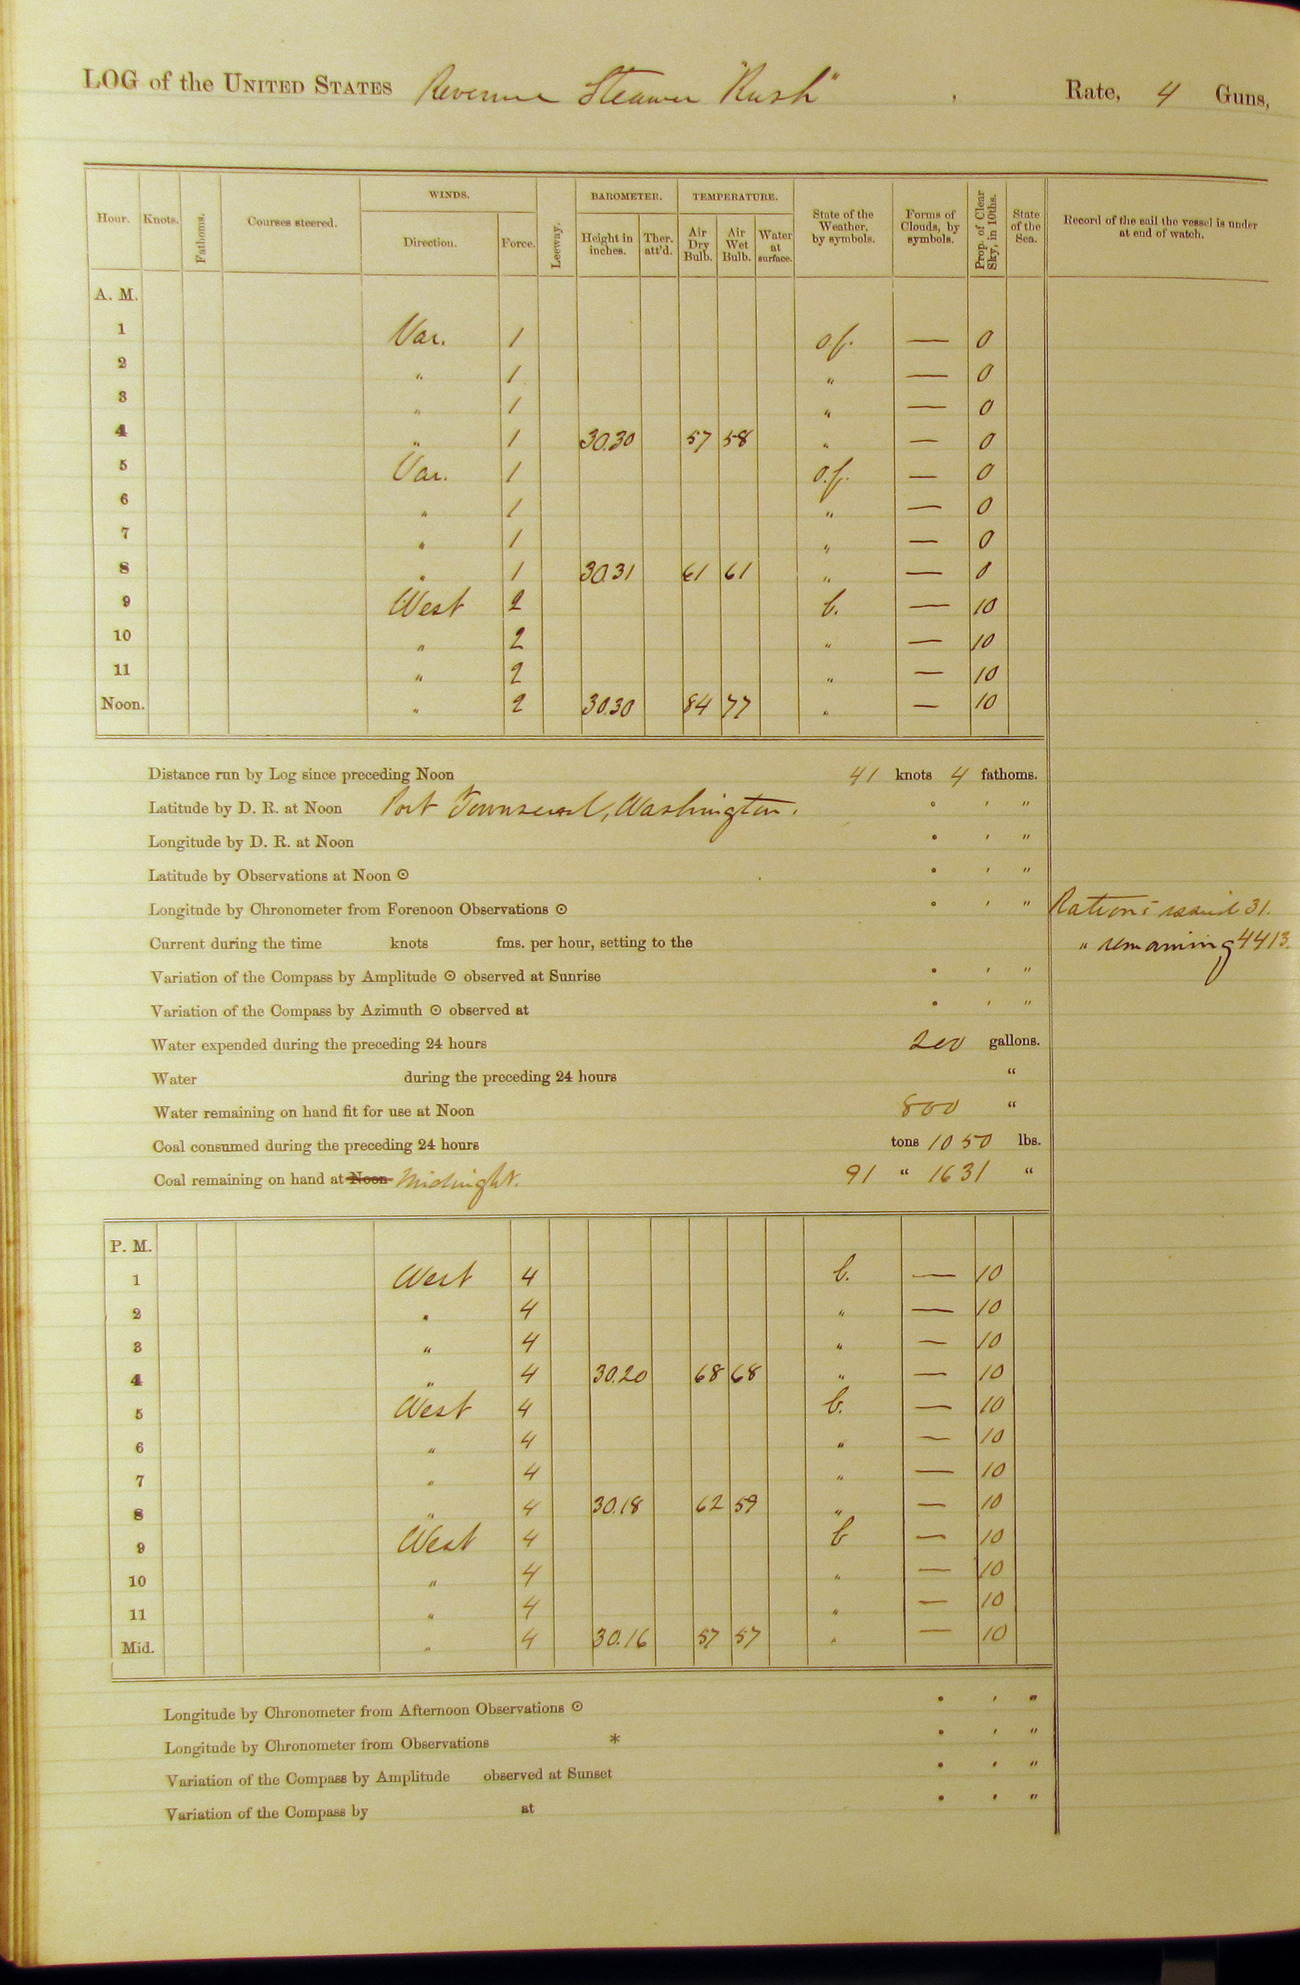 LOG of the UNITED STATES Revenue Steamer "Rush" , Rate, 4 Guns,
WINDS. BAROMETER. TEMPERATURE.
Hour. Knots. Fathoms. Courses steered. Direction. Force. Leeway. Height in inches. Ther. att'd. Air Dry Bulb. Air Wet Bulb. Water at surface. State of the Weather, by symbols. Forms of Clouds, by symbols. Prop. of Clear Sky, in 10ths. State of the Sea. Record of the sail the vessel is under at end of watch.
A. M.
1 Var. 1 o.f. — 0
2 " 1 " — 0
3 " 1 " — 0
4 " 1 30.30 57 58 " — 0
5 Var. 1 o.f. — 0
6 " 1 " — 0
7 " 1 " — 0
8 " 1 30.31 61 61 " — 0
9 West 2 b. — 10
10 " 2 " — 10
11 " 2 " — 10
Noon. " 2 30.30 84 77 " — 10
Distance run by Log since preceding Noon 41 knots 4 fathoms.
Latitude by D. R. at Noon Port Townsend, Washington. ° ′ ″
Longitude by D. R. at Noon ° ′ ″
Latitude by Observations at Noon ⊙ ° ′ ″
Longitude by Chronometer from Forenoon Observations ⊙ ° ′ ″ Rations issued 31.
Current during the time knots fms. per hour, setting to the " remaining 4413.
Variation of the Compass by Amplitude ⊙ observed at Sunrise ° ′ ″
Variation of the Compass by Azimuth ⊙ observed at ° ′ ″
Water expended during the preceding 24 hours 200 gallons.
Water during the preceding 24 hours "
Water remaining on hand fit for use at Noon 800 "
Coal consumed during the preceding 24 hours tons 1050 lbs.
Coal remaining on hand at Noon Midnight. 91 " 1631 "
P. M.
1 West 4 b. — 10
2 " 4 " — 10
3 " 4 " — 10
4 " 4 30.20 68 68 " — 10
5 West 4 b. — 10
6 " 4 " — 10
7 " 4 " — 10
8 " 4 30.18 62 59 " — 10
9 West 4 b — 10
10 " 4 " — 10
11 " 4 " — 10
Mid. " 4 30.16 57 57 " — 10
Longitude by Chronometer from Afternoon Observations ⊙ ° ′ ″
Longitude by Chronometer from Observations * ° ′ ″
Variation of the Compass by Amplitude observed at Sunset ° ′ ″
Variation of the Compass by at ° ′ ″